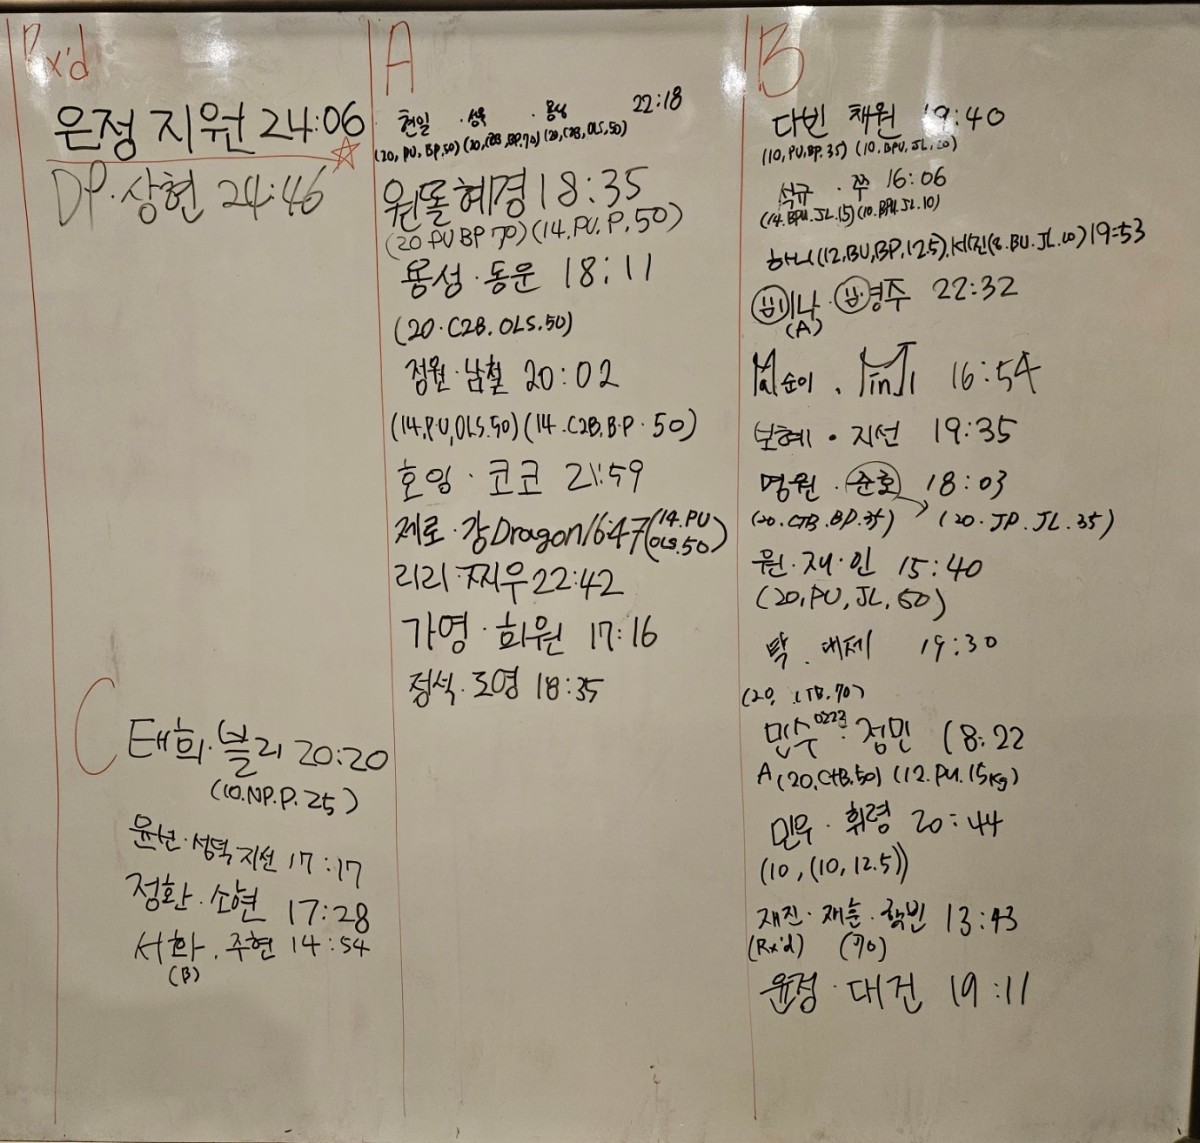 Rx'd
은정 지원 24:06
DP·상현 24:46
A
현일 · 성욱 · 용상 22:18
(20, PU, BP, 50) (20, C2B, BP, 70) (20, C2B, OLS, 50)
원똘 혜경 18:35
(20 PU BP 70) (14. PU. P. 50)
용성·동운 18:11
(20·C2B. OLS. 50)
정원·남철 20:02
(14, PU, OLS. 50) (14·C2B. B·P· 50)
호잉·코코 21:59
제로·강Dragon 16:47 (14. PU OLS. 50)
리리·찌우 22:42
가영·희원 17:16
정석·도영 18:35
B
다빈 채원 19:40
(10, PU, BP. 35) (10. BPU, JL, 20)
석규 · 쭈 16:06
(14. BPU. JL. 15) (10. BPU. JL. 10)
하니 (12, BU, BP, 12.5), 세진 (8. BU. JL. 10) 19:53
미낙 · 영주 22:32
(A)
Ma순이 . MinJi 16:54
보혜 · 지선 19:35
명원 · 준호 18:03
(20. CTB. BP. 35) (20. JP. JL. 35)
원·재·인 15:40
(20, PU, JL, 50)
딱 . 대제 19:30
(20, CTB. 70)
민수0223 · 정민 18:22
A (20, CTB, 50) (12. PU. 15kg)
민우 · 휘령 20:44
(10, (10, 12.5))
재진·재훈·학빈 13:43
(Rx'd) (70)
윤정·대건 19:11
C
태희·블리 20:20
(10. NP. P. 25)
윤선·성덕·지선 17:17
정환·소현 17:28
서화 . 주현 14:54
(B)